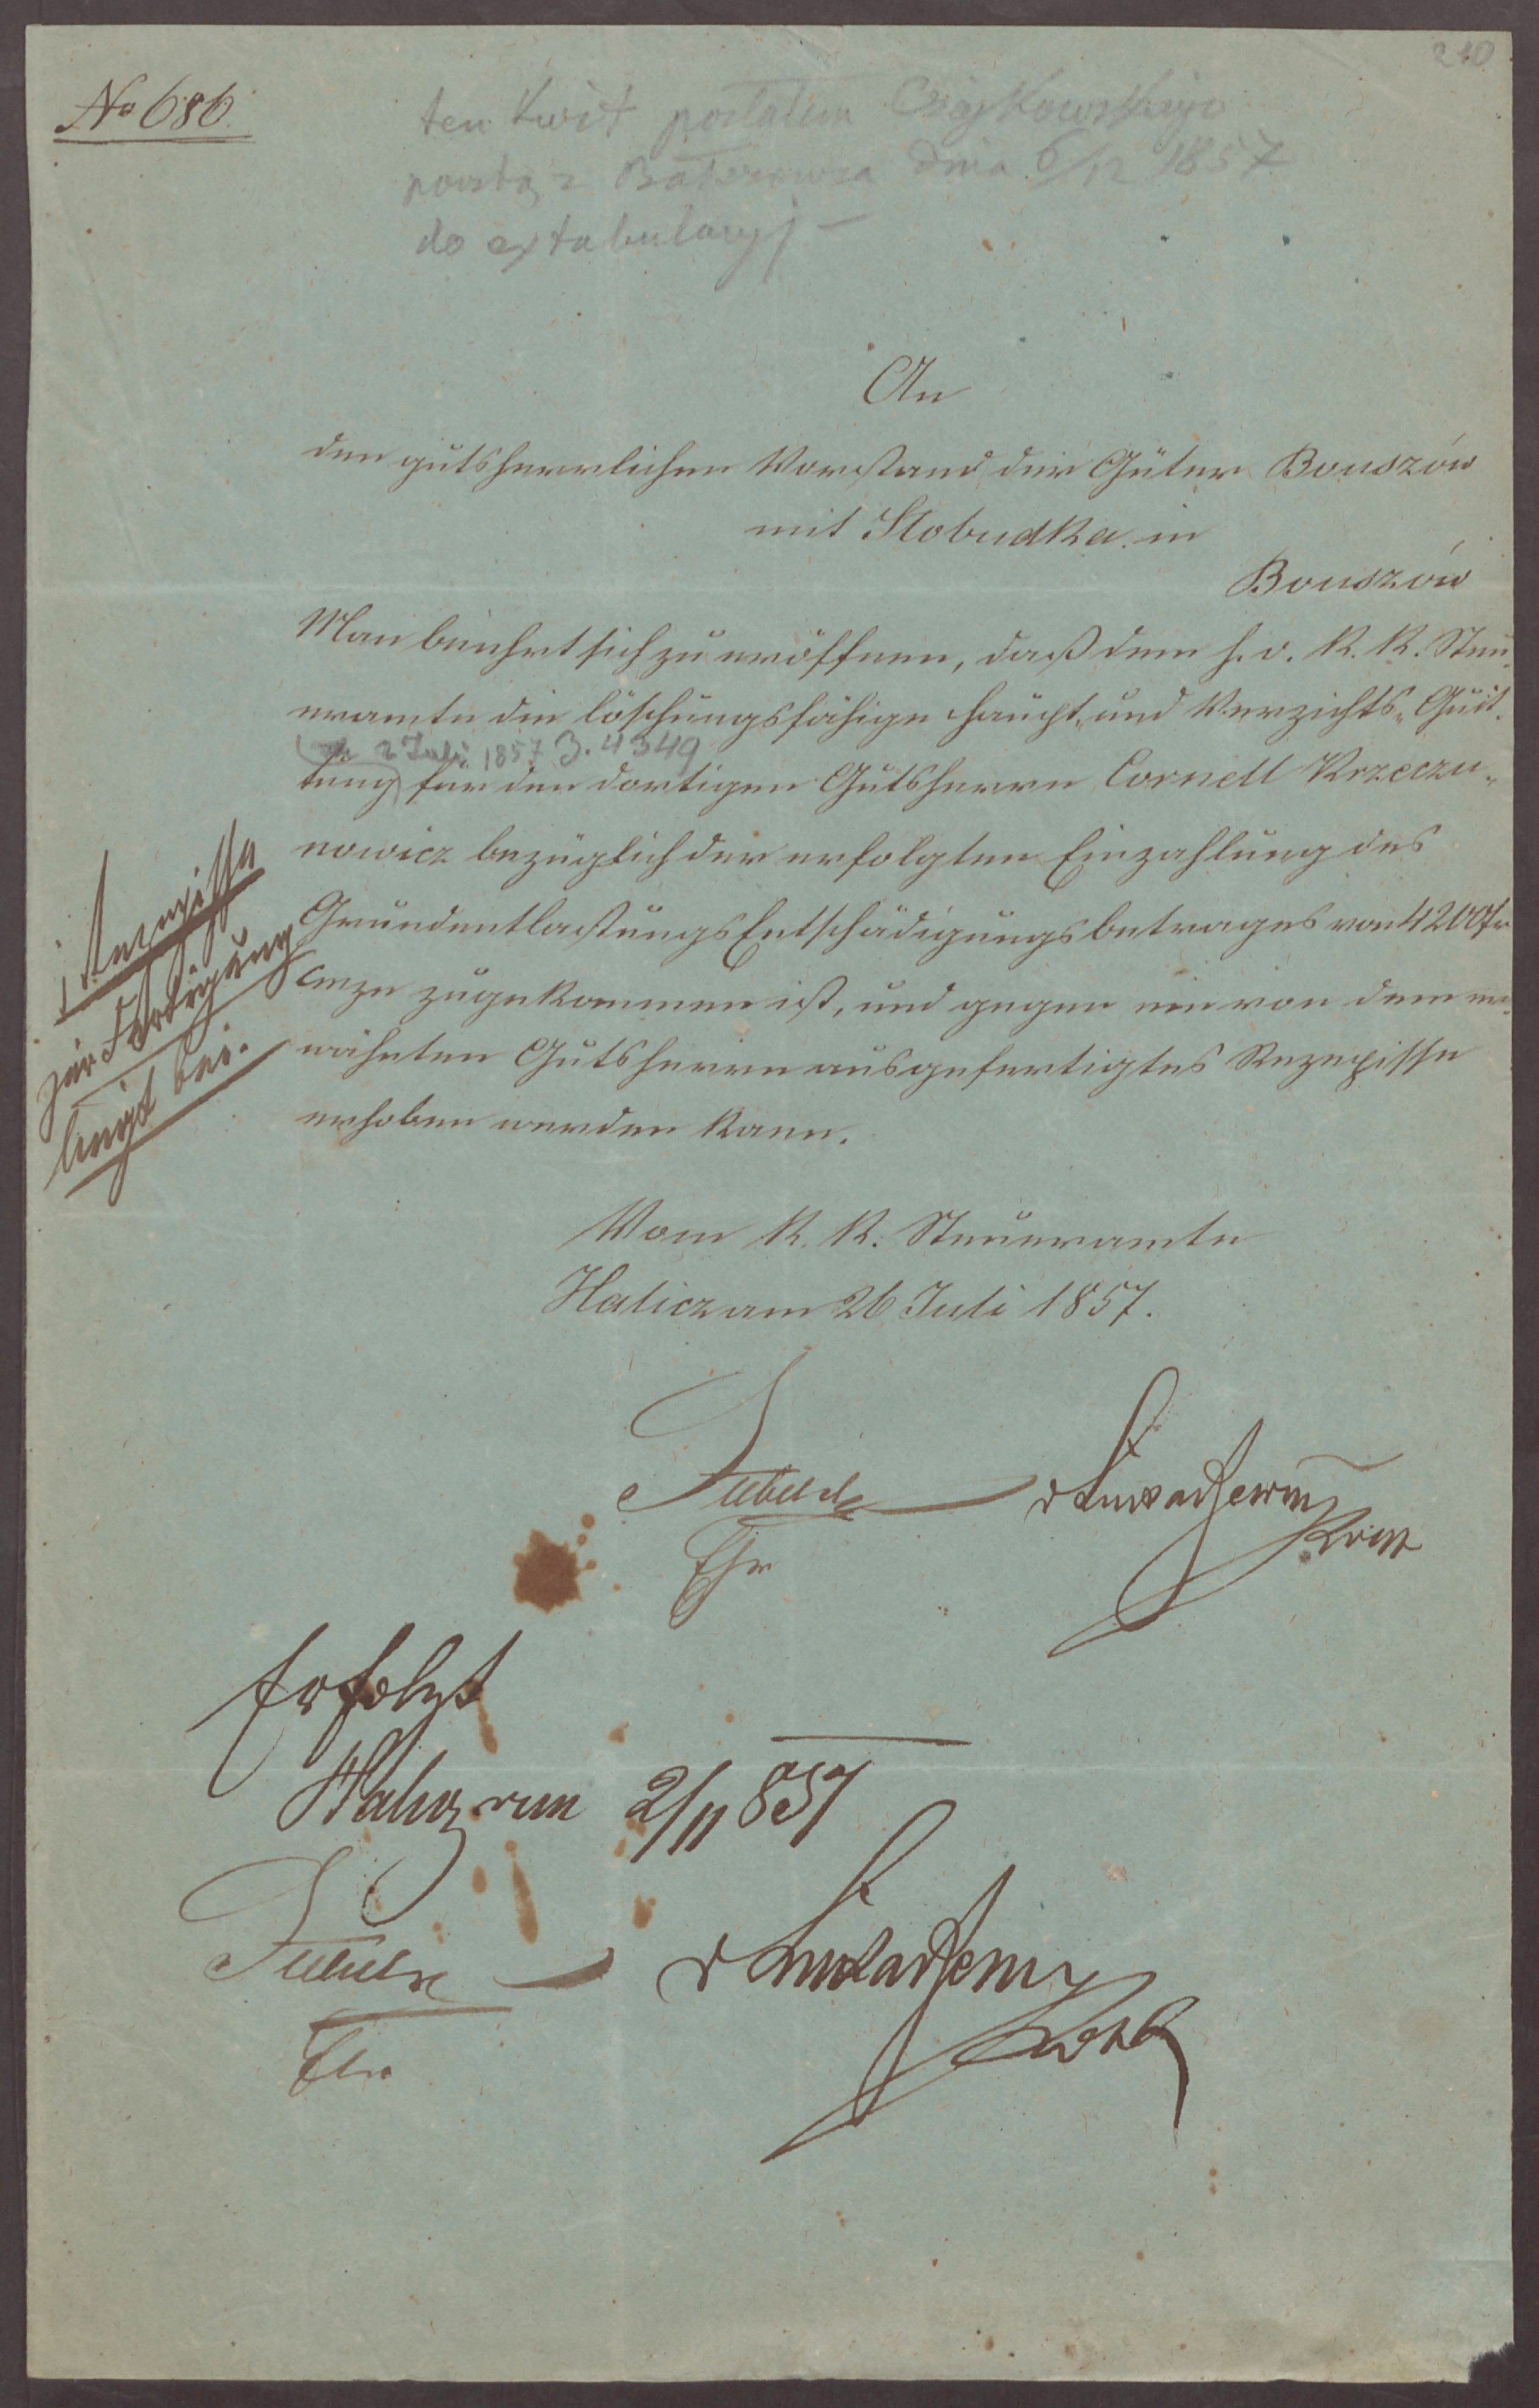 210
No 686.
ten kwit posłałem Czajkowskiego
pocztą z dnia 6/12 1857
do extabulacyj –
An
den gutsherrlichen Vorstand der Güter Bouszów
mit Slobudka in
Bouszów
Man beehrt sich zu eröffnen, daß dem h. o. K. K. Steu
eramte die löschungsfähige Haupt- und Verzichts-Quit
2 Juli 1857 Z. 4349
tung für den dortigen Gutsherrn Cornell Krzeczu-
nowicz bezüglich der erfolgten Einzahlung des
Grundentlastungs Entschädigungsbetrages von 4200 fr
CMze zugekommen ist, und gegen ein von dem er
wähnten Gutsherrn ausgefertigtes Rezepisse
erhoben werden kann.
1 Rezepisse
zur Fertigung
liegt bei.
Vom K. K. Steueramte
Halicz am 26 Juli 1857.
Erfolgt
Halicz am 2/11 857